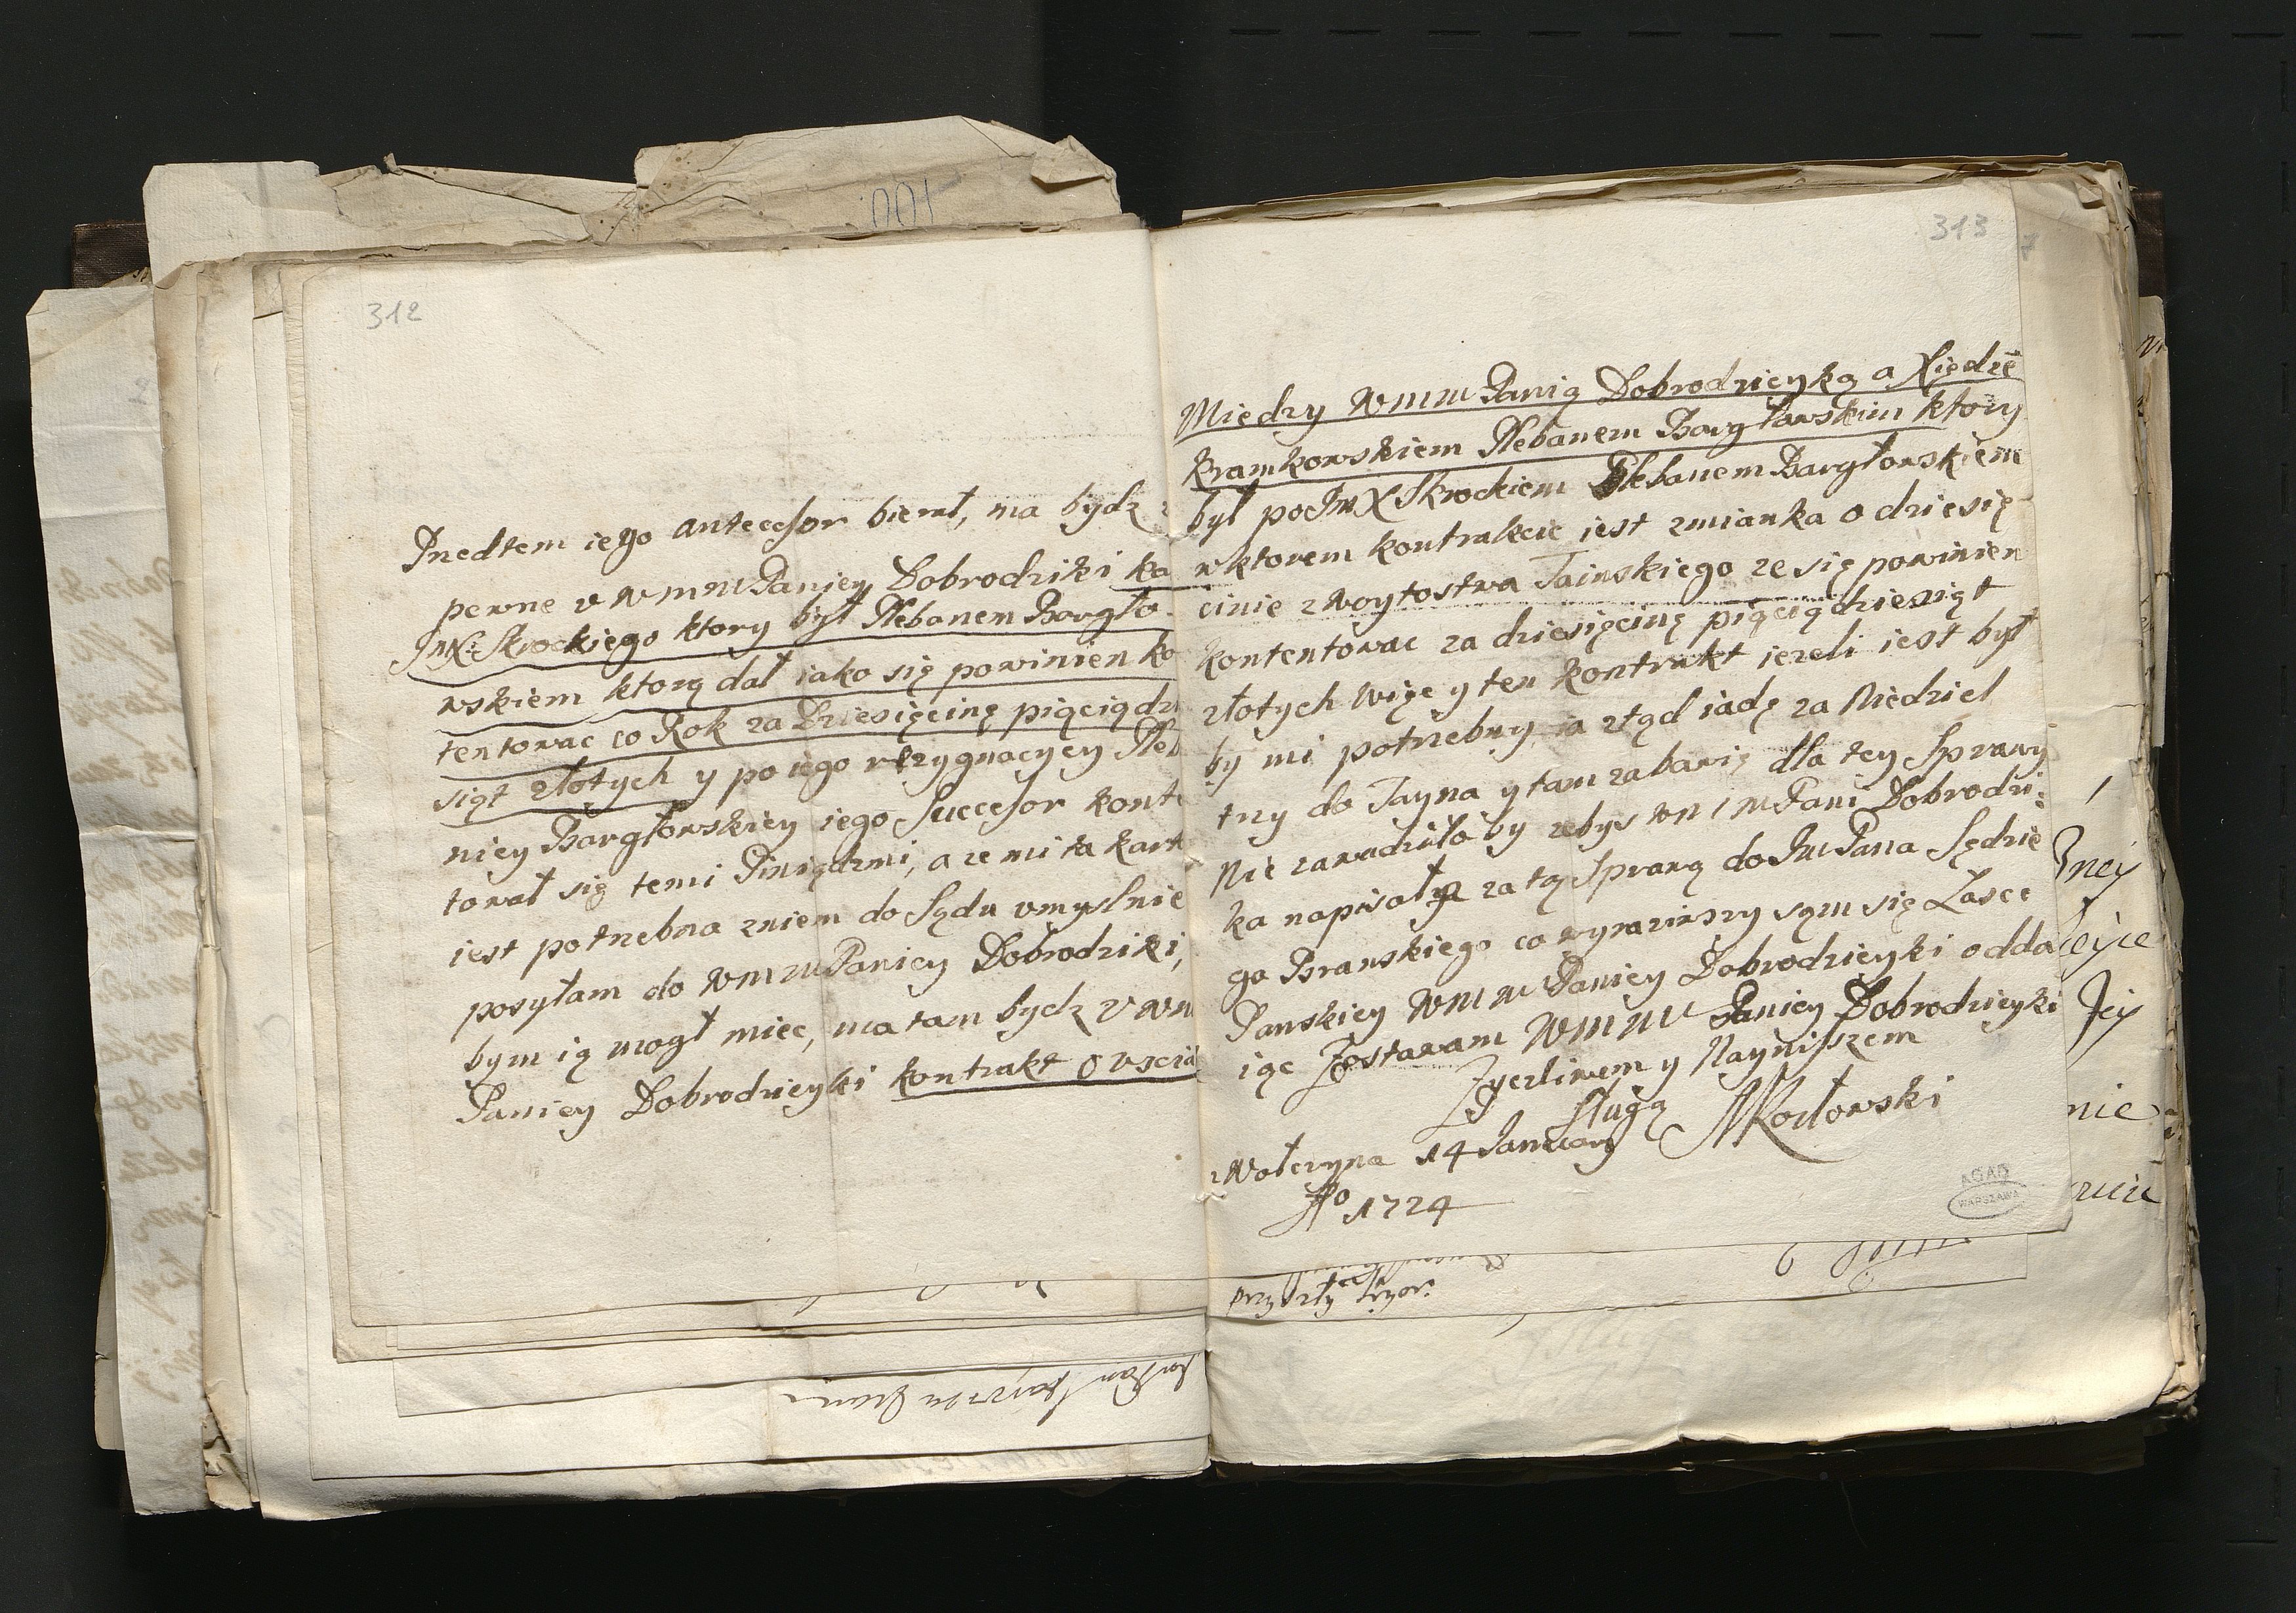 001
312
Przedtem iego antecesor bierał, ma bydz
pewne v WMM Paniey Dobrodziki ka
JmX: Skrockiego ktory był Plebanem Bargło
wskiem ktorą dał iako się powinien ko
tentowac co Rok za Dziesięcinę pięciądzi
siąt złotych y po iego rezygnacyey Pleb
niey Bargłowskiey iego Succesor konte
tował się temi Piniądzmi, a ze mi ta kart
iest potrzebna zniem do Sądu vmyslnie
posyłam do WMM Paniey Dobrodziki,
bym ią mogł miec, ma tam bydz v WM
Paniey Dobrodzieyki kontrakt o vscią
313
7
Miedzy WMM Panią Dobrodzieyką a Xiedzē
Kramkowskiem Plebanem Bargłowskim ktory
był po JmX Skrockiem Plebanem Bargłowskiem
w ktorem kontrakcie iest zmianka o dziesię
cinie z woytostwa Tainskiego ze się powinien
kontentowac za dziesięcinę pięciądziesiąt
złotych Więc y ten kontrakt iezeli iest był
by mi potrzebny ia ztąd iadę za Niedziel
trzy do Tayna y tam zabawię dla tey Sprawy
Nie zawadziło by zebys WMM Pani Dobrodzi:
ka napisały za tą Sprawą do Jm Pana Sędzie
go Branskiego co wyraziwszy sąm się Łasce
Panskiey WMM Paniey Dobrodzieyki odda
iąc Zostawam WMM Paniey Dobrodzieyki
Zyczliwem y Nayniszem
sługą
AKozłowski
z Wołczyna 14 January
Ao 1724
AGAD
WARSZAWA